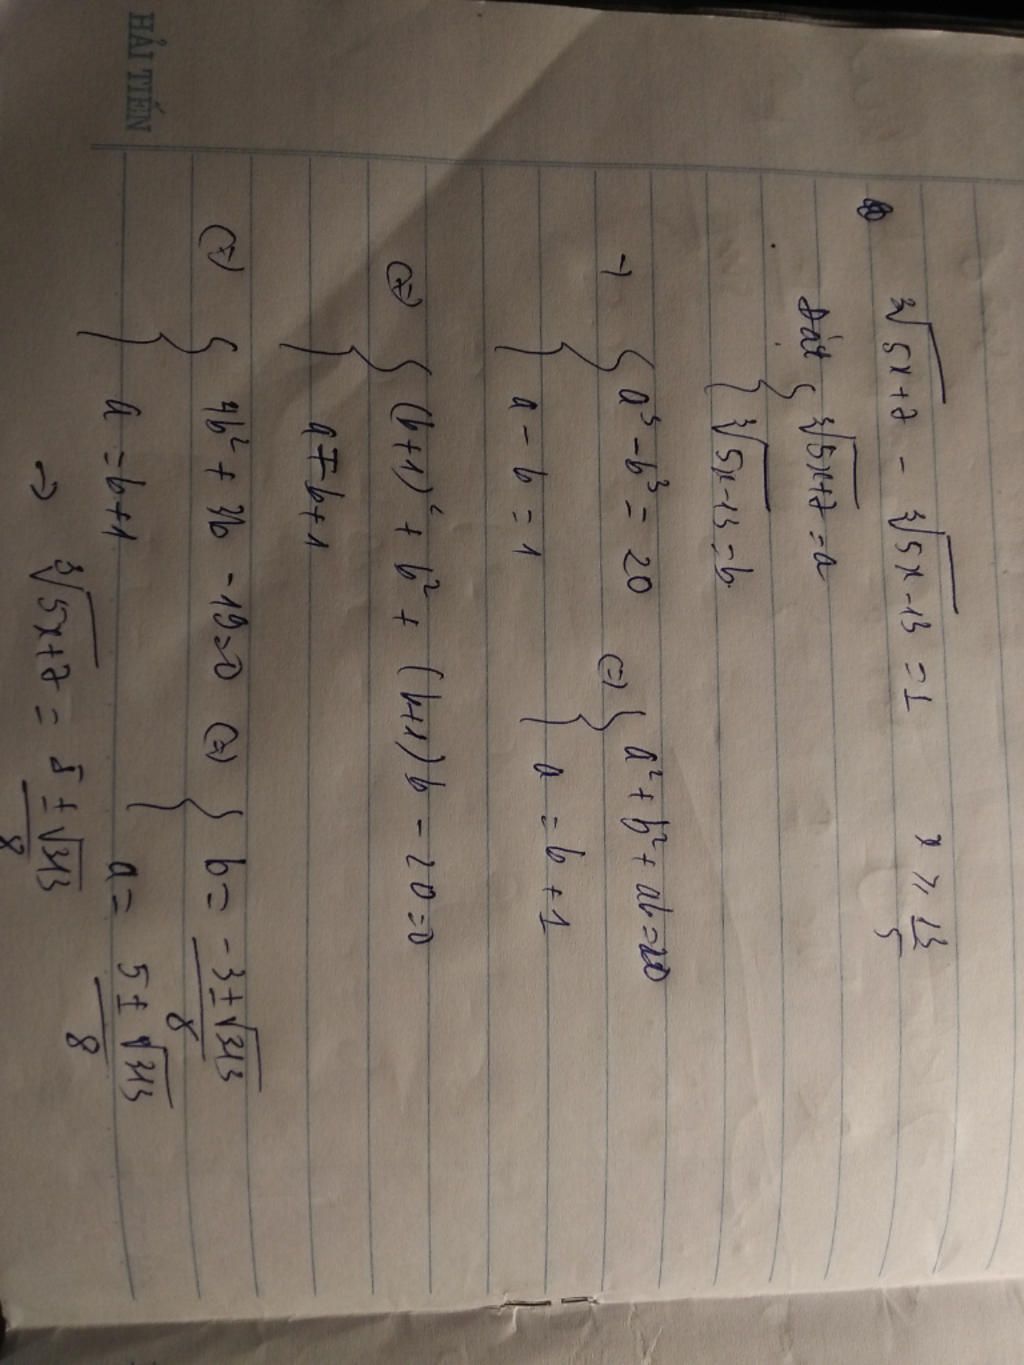 HẢI TIẾN
∛5x+7 - ∛5x-13 = 1 x ⩾ 13/5
Đặt { ∛5x+7 = a
{ ∛5x-13 = b
→ { a³ - b³ = 20 (=) { a² + b² + ab = 20
{ a - b = 1 { a = b + 1
(=) { (b+1)² + b² + (b+1) b - 20 = 0
{ a = b + 1
(=) { 4b² + 3b - 19 = 0 (=) { b = -3 ± √313 / 8
{ a = b + 1 { a = 5 ± √313 / 8
→ ∛5x+7 = 5 ± √313 / 8